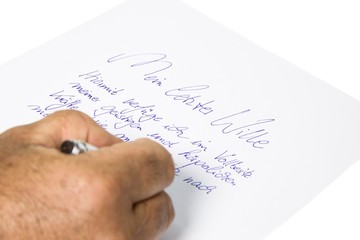 Mein letzter Wille
Hiermit verfüge ich im Vollbesitz
meiner geistigen und körperlichen
Kräfte
nach